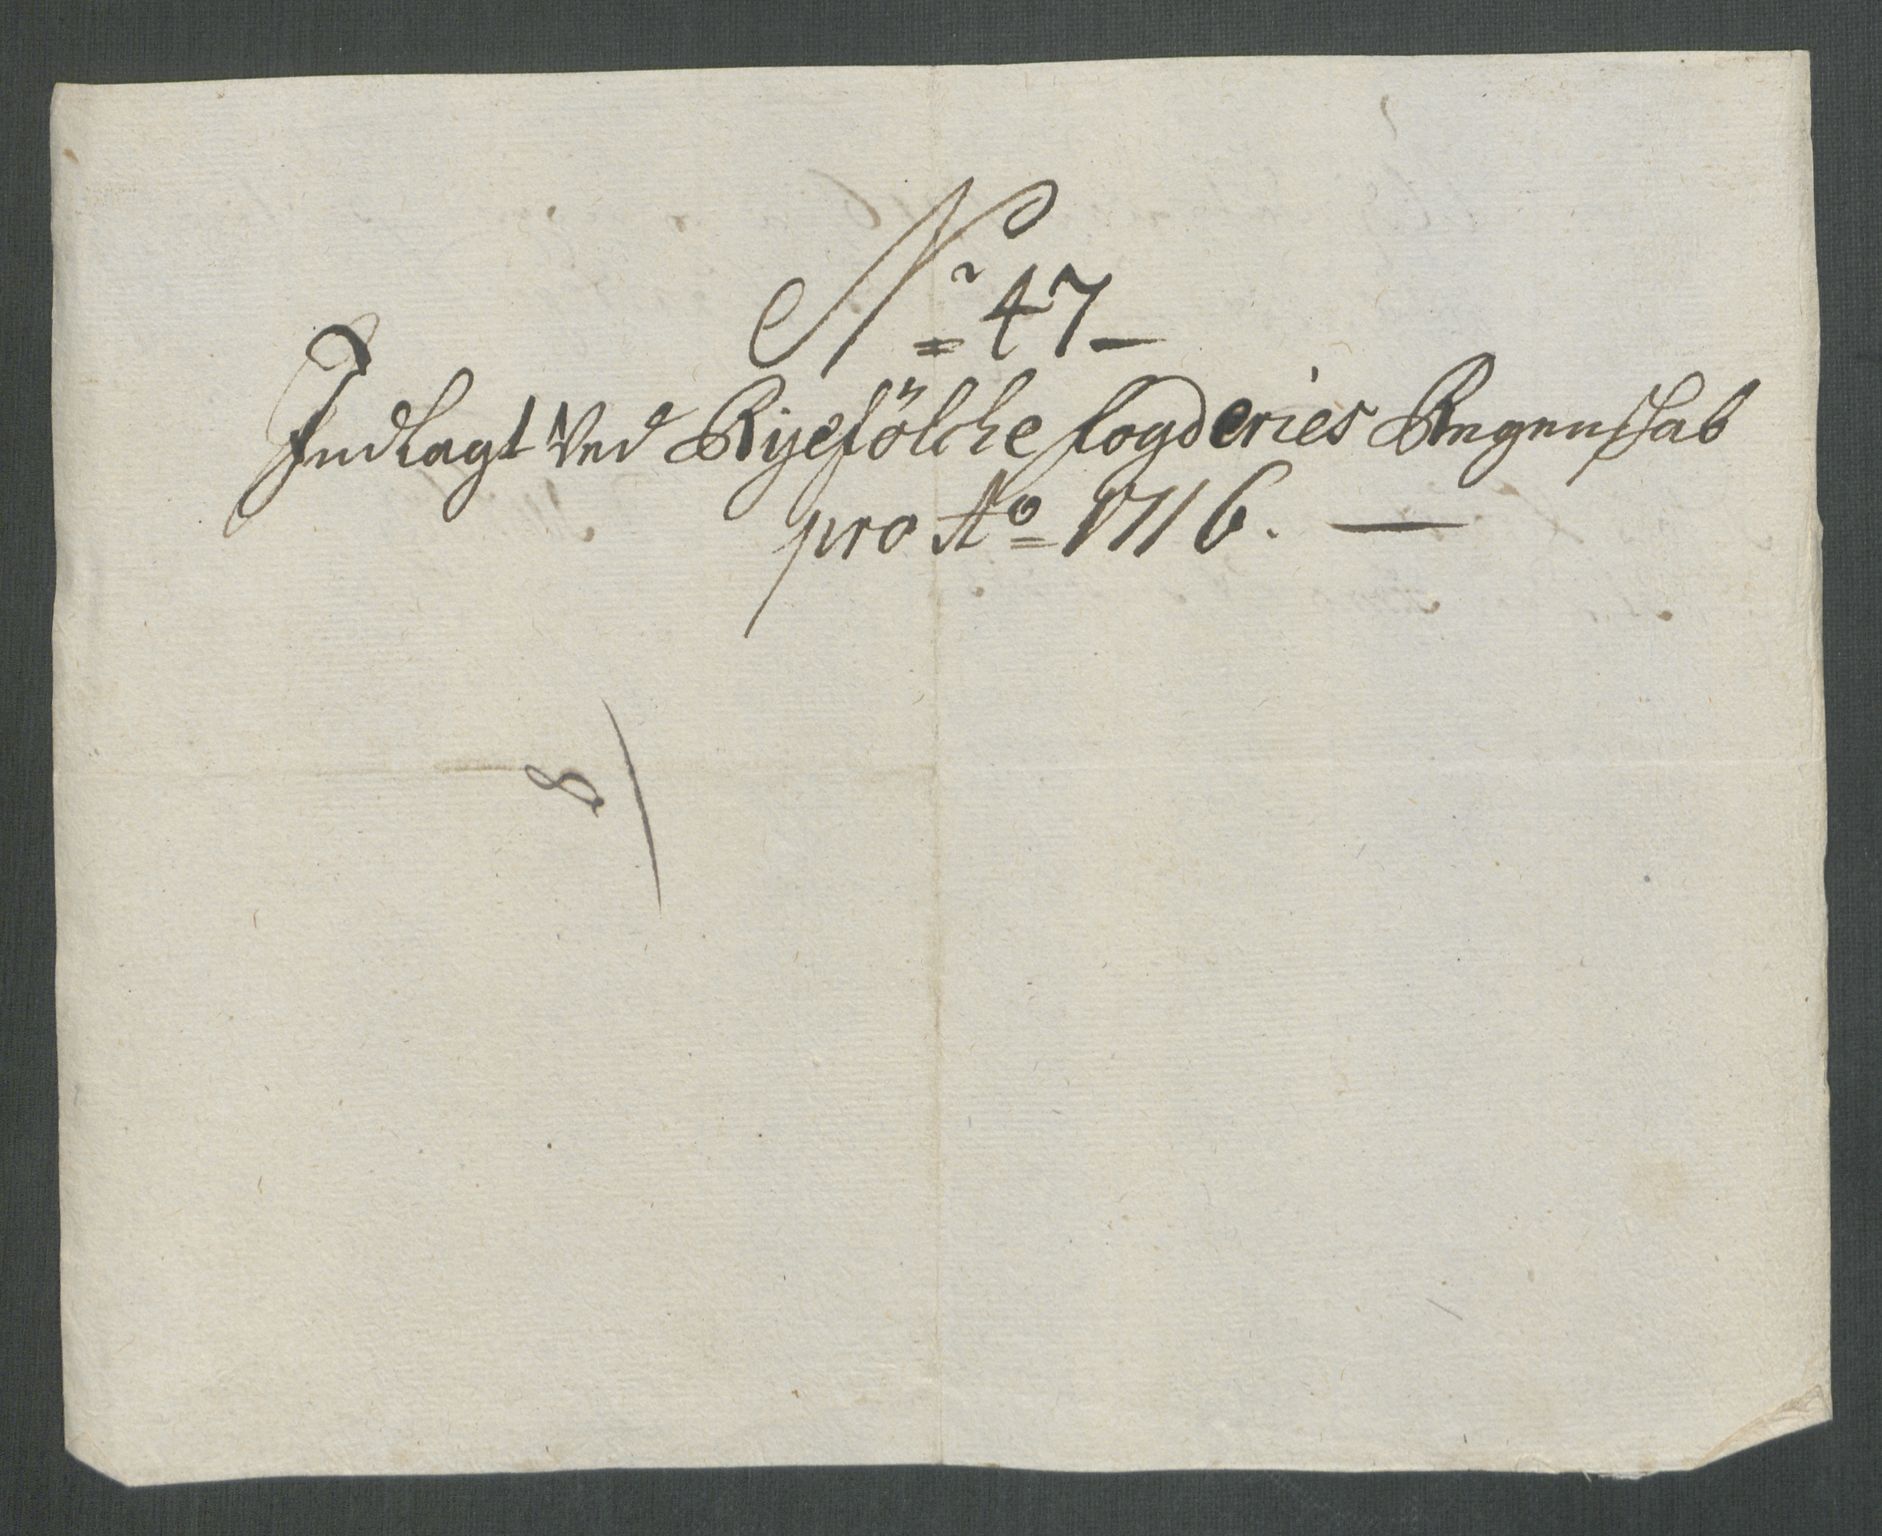 No 47
Indlagt Ved Ryefölche fogderies Regenschab
pro Ao 1716.
8